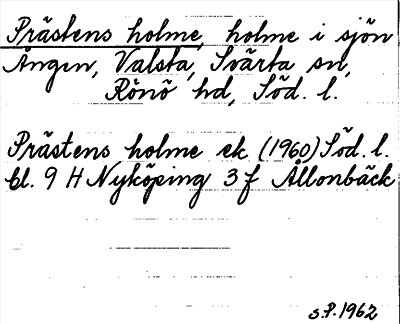 Prästens holme, holme i sjön
Ången, Valsta, Svärta sn,
Rönö hd, Söd. l.
Prästens holme ek (1960) Söd. l.
bl. 9 H Nyköping 3 f Ållonbäck
s.P. 1962